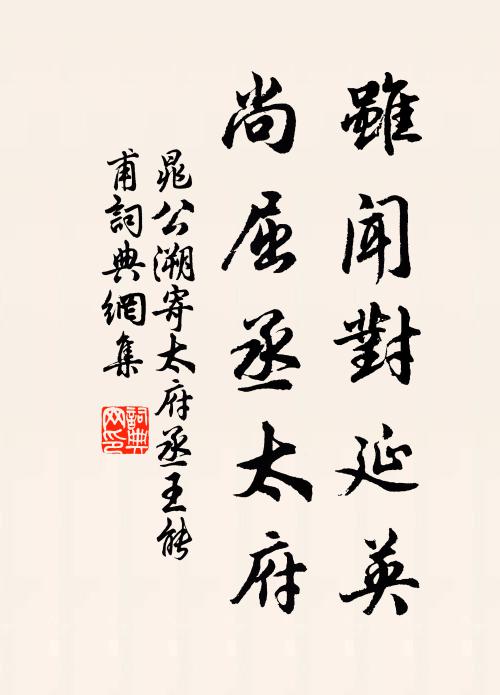 雖聞對延英
尚屈丞太府
晁公溯寄太府丞王能
甫詞典網集
詞典網印